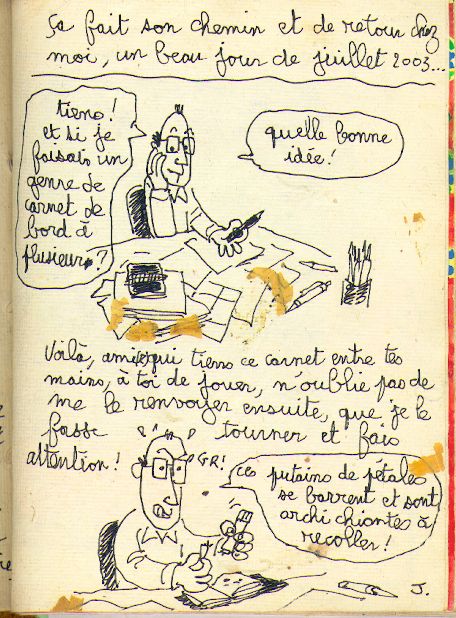 Ça fait son chemin et de retour chez
moi, un beau jour de juillet 2003...
tiens!
et si je
faisais un
genre de
carnet de
bord à
plusieurs?
quelle bonne
idée!
Voilà, ami(e) qui tiens ce carnet entre tes
mains, à toi de jouer, n'oublie pas de
me le renvoyer ensuite, que je le
fasse tourner et fais
attention!
GR!
ces putains de pétales
se barrent et sont
archi chiantes à
recoller!
J.